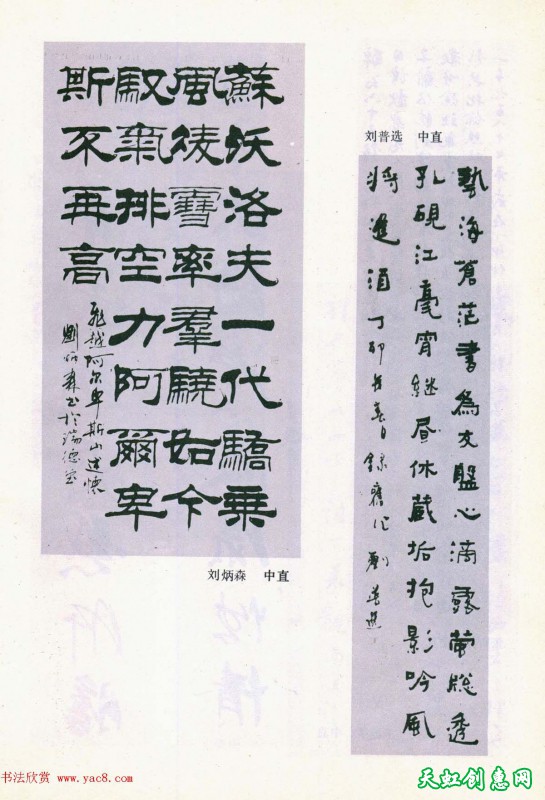 蘇沃洛夫一代驕乘
風凌雪率羣驍如今
馭氣排空力阿爾卑
斯不再高
飛越阿尔卑斯山述懷
劉炳森書於瑞德
刘炳森 中直
刘普选 中直
藝海蒼茫書為友盤心滴露螢牎透
孔硯江毫宵継昼休蔵垢抱影吟風
將進酒 丁卯年春日錄舊作劉普選
书法欣赏 www.yac8.com
天虹创意网